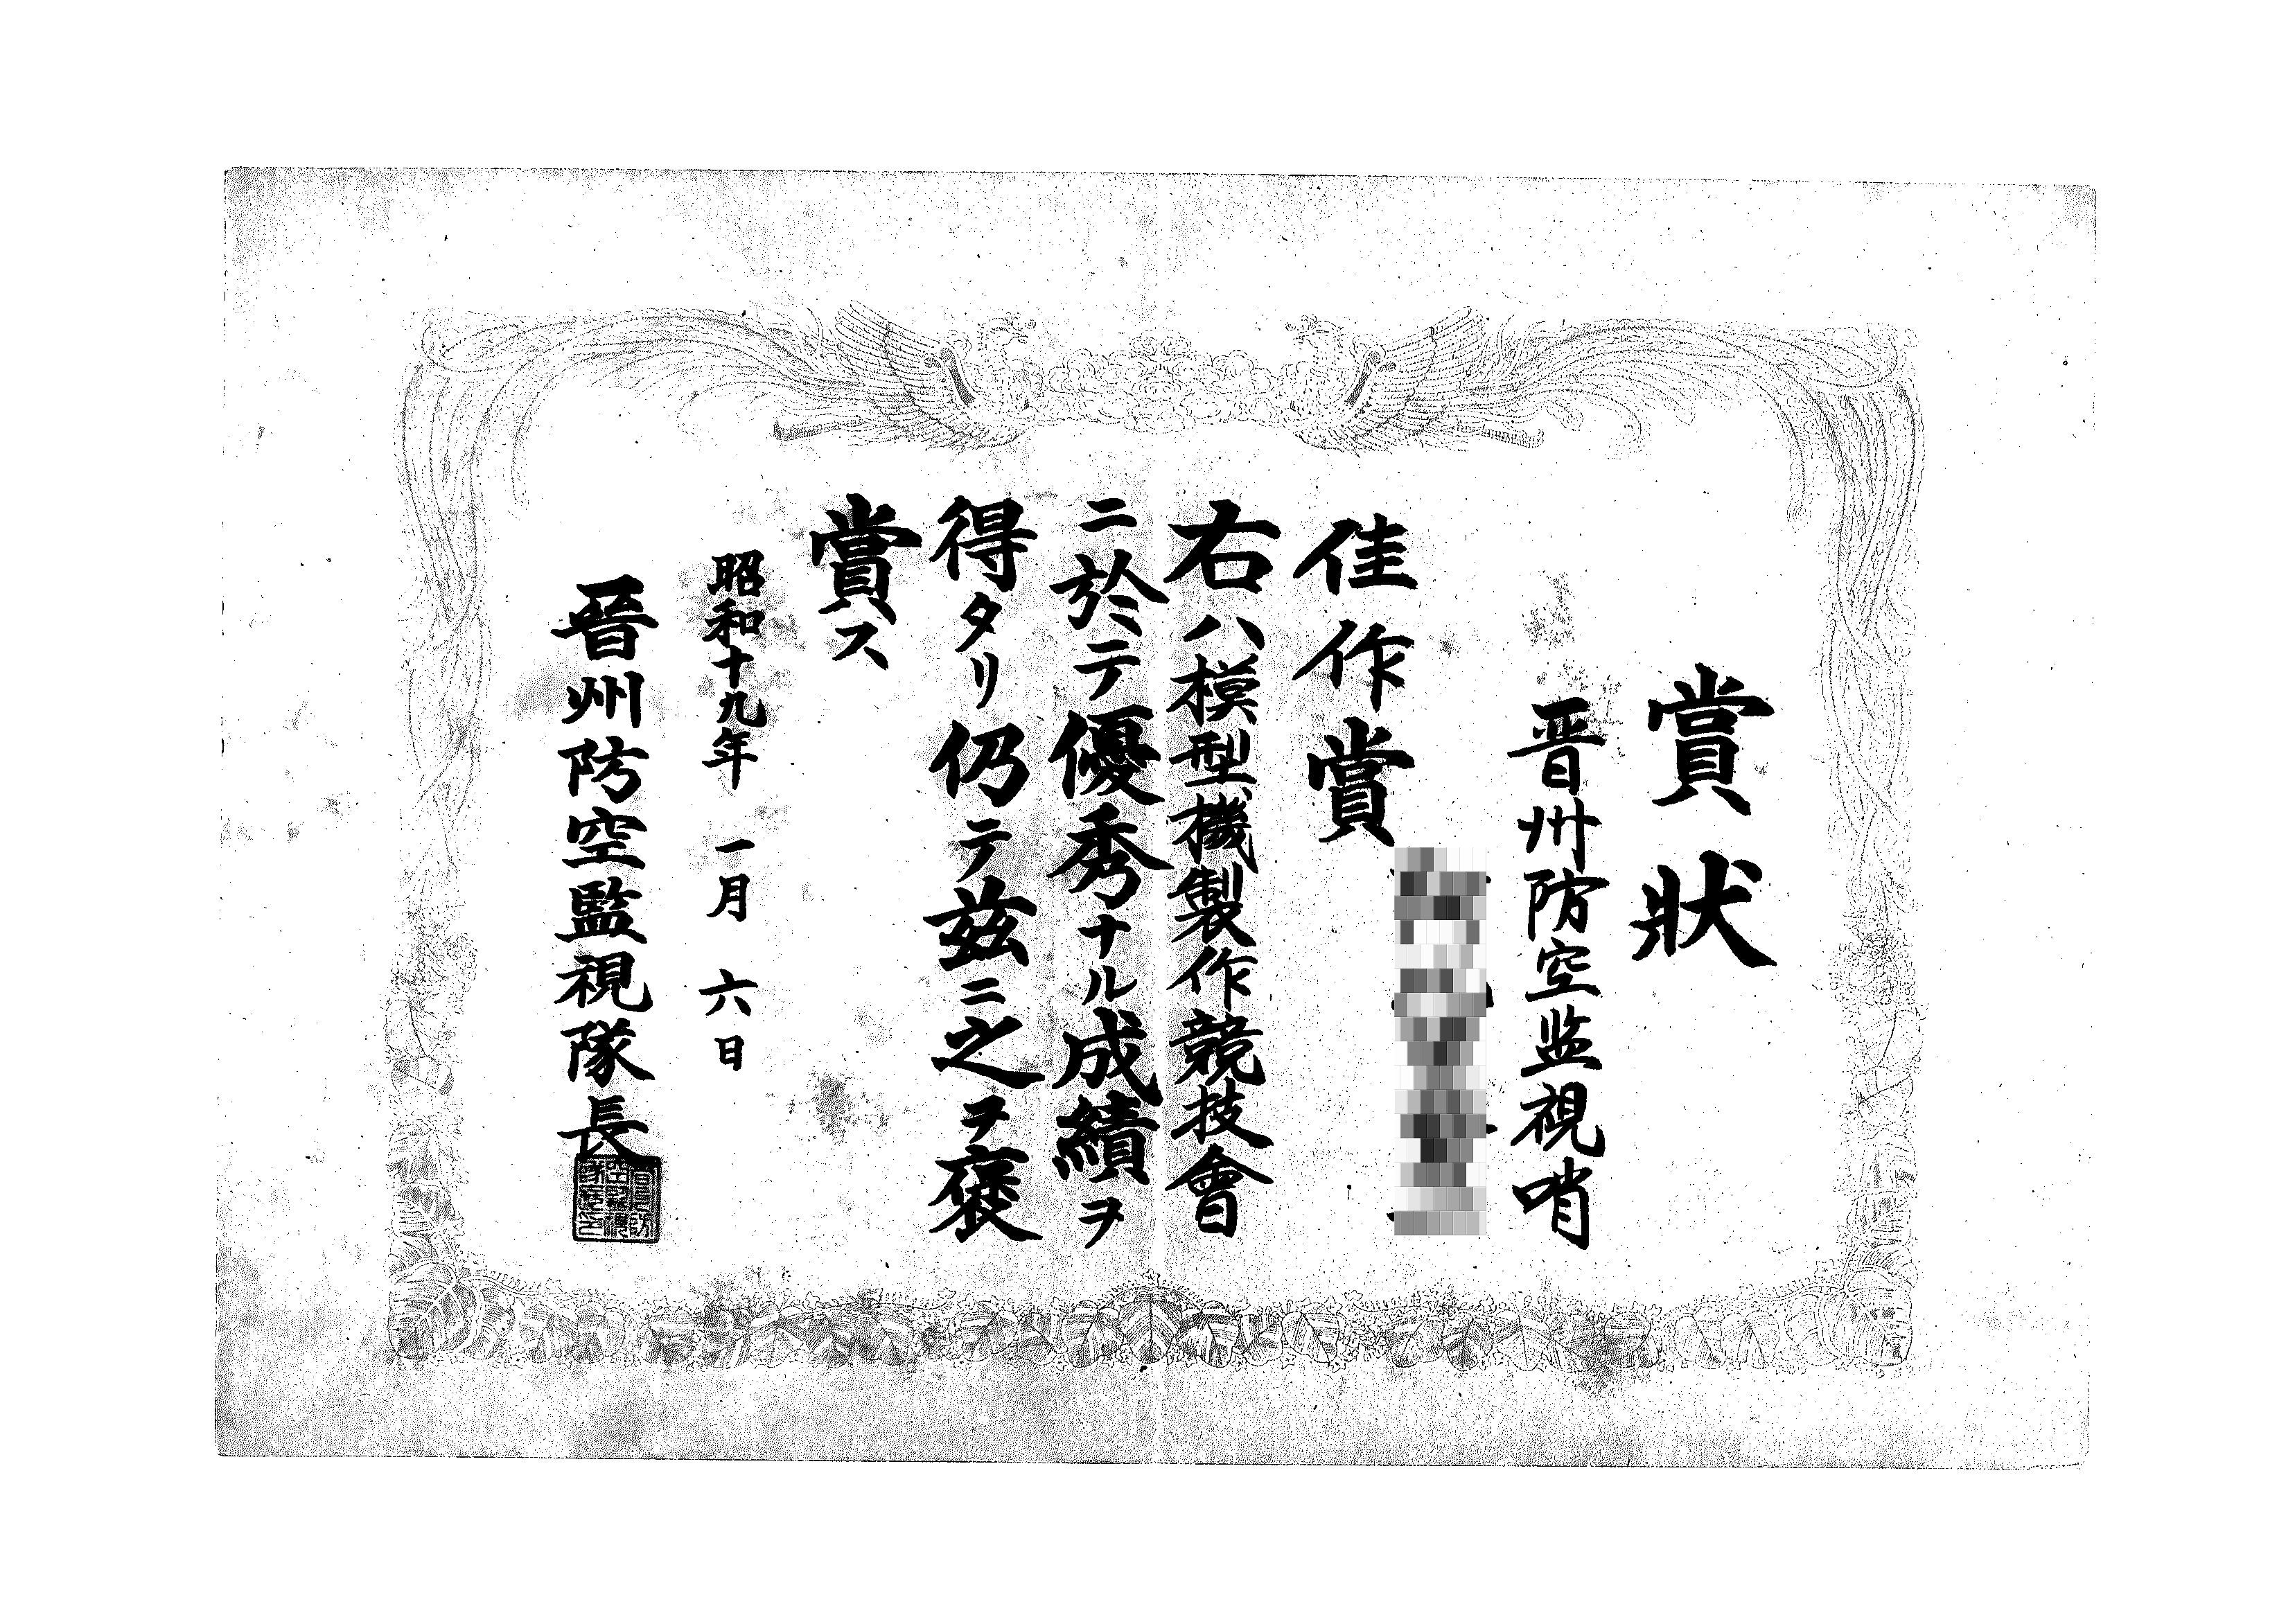 賞狀
晋州防空监視哨
佳作賞
右ハ模型機製作競技會
ニ於テ優秀ナル成績ヲ
得タリ仍テ茲ニ之ヲ褒
賞ス
昭和十九年 一月 六日
晉州防空監視隊長